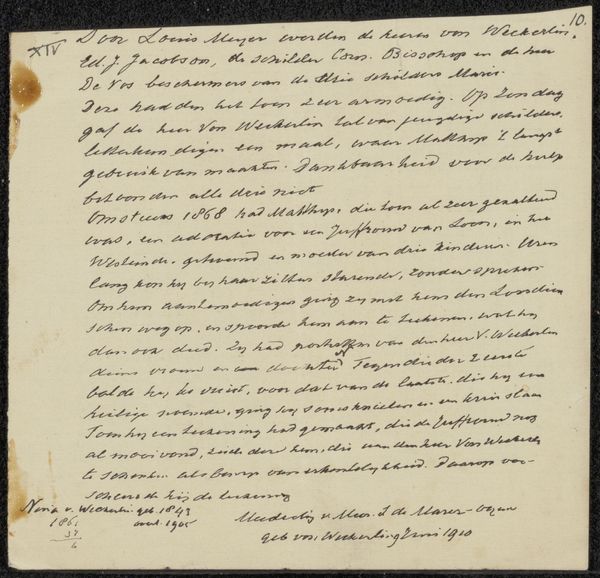 10.
XIV
Door Louis Meyer werden de heeren von Weckerlin,
Ed. J. Jacobson, de schilder Corn. Bisschop en de heer
De Vos beschermers van de drie schilders Maris.
Deze hadden het toen zeer armoedig. Op Zondag
gaf de heer Von Weckerlin tal van jeugdige schilders,
letterkundigen een maal, waar Matthijs 't langst
gebruik van maakten. Dankbaarheid voor de hulp
betoonden alle drie niet
Omstreeks 1868 had Matthijs, die toen al zeer
was, een adoratie voor een Juffrouw van Loon, in het
Westeinde, gehuwd en moeder van drie kinderen. Uren
lang kon hij bij haar zitten starende, zonder spreken.
Om hem aantemoedigen ging zij met hem den Loosduin
schen weg op, en spoorde hem aan te teekenen, wat hij
dan ook deed. Zij had portretten van den heer V. Weckerlin
diens vrouw en dochter. Tegen die der 2 eerste
balde hij de vuist, voor dat van de laatste, die hij een
heilige noemde, ging hij soms knielen en een kruis slaan
Toen hij een teekening had gemaakt, die de Juffrouw nog
al mooi vond, zeide der hem, die aan den heer Von Weckerlin
te schenken als bewijs van erkentelijkheid. Daarop ver-
scheurde hij de teekening
Maria v. Weckerlin geb. 1843
overl. 1905
186.
37
6
Mededeeling v. Mevr. J. de
geb von Weckerling Juni 1910